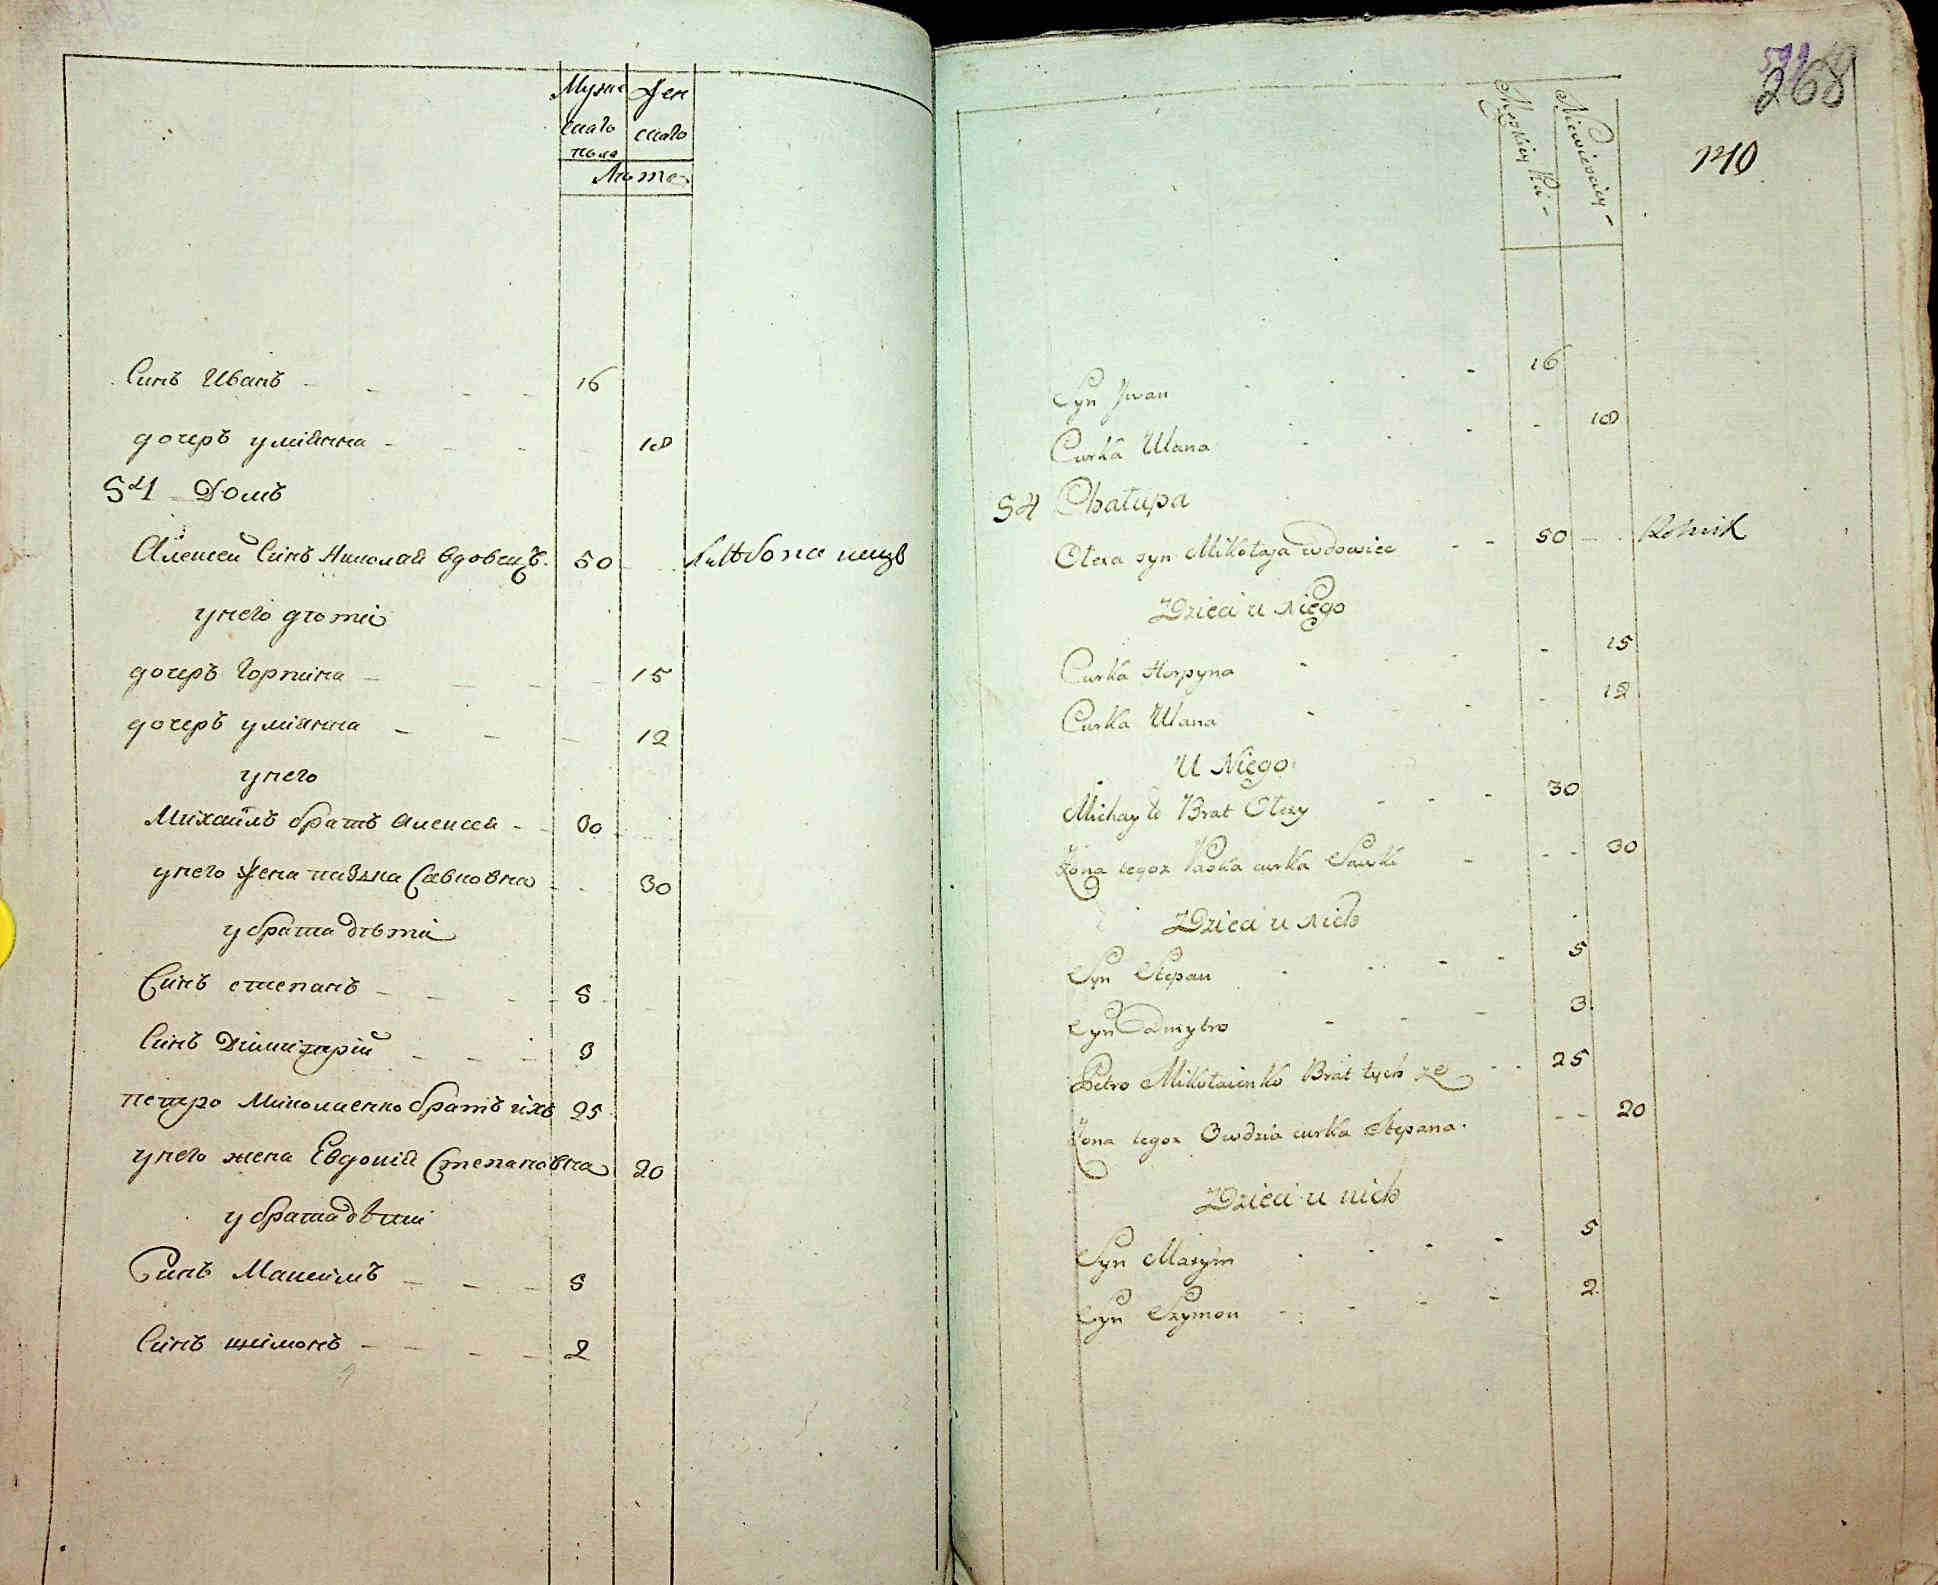 Мужескаго пола
Женскаго
Лѣта
Синъ Иванъ 16
дочеръ уміянна 18
54 Домъ
Алексей Синъ Николай вдовецъ 50 хлѣбопашецъ
у него дѣти
дочеръ Горпина 15
дочеръ уміянна 12
у него
Михаилъ братъ Алексей 30
у него жена Савковна 30
у брата дѣти
Синъ степанъ 5
Синъ Димитрій 3
петро Миколаенко братъ ихъ 25
у него жена Евдокія Степановна 20
у брата дѣти
Синъ Максимъ 5
Синъ шімонъ 2
598
268
140
Męzkiey Płci
Niewiesciey
Syn Jwan 16
Curka Ulana 18
54 Chałupa
Olexa syn Mikołaja wdowiec 50 Rolnik
Dzieci u Niego
Curka Horpyna 15
Curka Ulana 12
U Niego
Michayło Brat Olexy 30
Żona tegoż Paska curka Sawki 30
Dzieci u nich
Syn Stepan 5
Syn Dmytro 3
Petro Mikołaienko Brat tych że 25
Żona tegoż Owdzia curka Stepana 20
Dzieci u nich
Syn Maxym 5
Syn Szymon 2